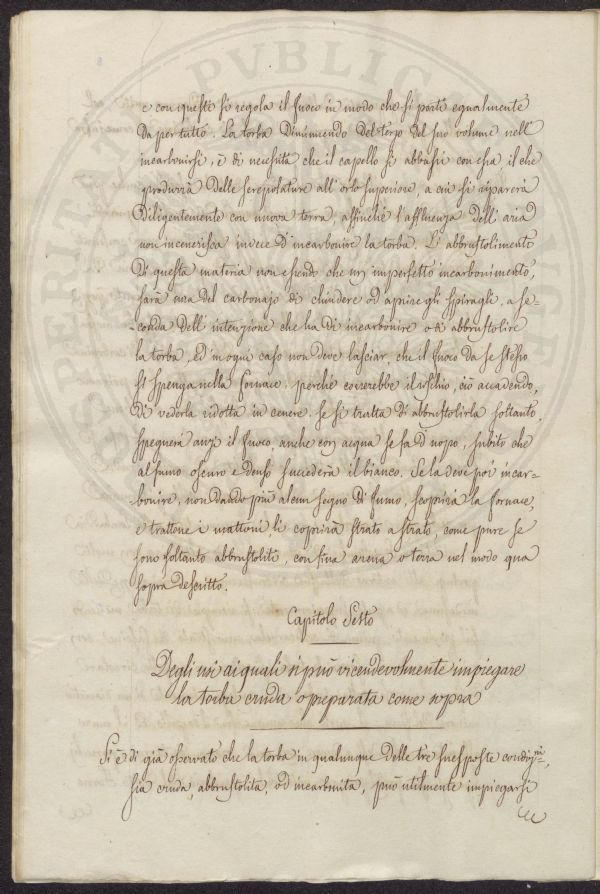 e con questi si regola il fuoco in modo che si parti egualmente
da per tutto. La torba diminuendo del terzo del suo volume nell'
incarbonirsi, è di necessità che il capello si abbassi con essa il che
produrrà delle screpolature all'orlo superiore, a cui si riparerà
diligentemente con nuova terra, affinchè l'affluenza dell'aria
non incenerisca invece d'incarbonire la torba. L'abbrustolimento
di questa materia non essendo che un imperfetto incarbonimento,
sarà cura del carbonajo di chiudere od aprire gli spiragli, a se=
=conda dell'intenzione che ha di incarbonire o di abbrustolire
la torba, ed in ogni caso non deve lasciar, che il fuoco da se stesso
si spenga nella fornace, perchè correrebbe il rischio, ciò accadendo,
di vederla ridotta in cenere. Se si tratta di abbrustolirla soltanto,
spegnerà anzi il fuoco, anche con acqua se fa d'uopo, subito che
al fumo oscuro e denso succederà il bianco. Se la deve poi incar=
=bonire, non dando più alcun segno di fumo, scoprirà la fornace,
e trattone i mattoni, li coprirà strato a strato, come pure se
sono soltanto abbrustoliti, con fina arena o terra nel modo qua
sopra descritto.
Capitolo Sesto
Degli usi ai quali si può vicendevolmente impiegare
la torba cruda o preparata come sopra
Si è di già osservato che la torba in qualunque delle tre suesposte condizni,
sia cruda, abbrustolita, od incarbonita, può utilmente impiegarsi